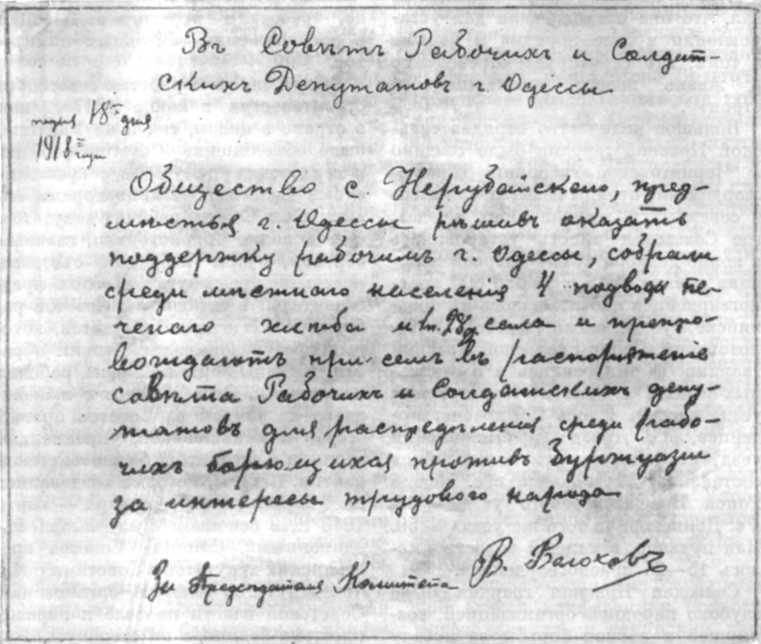 Въ Совѣтъ Рабочихъ и Солдат-
скихъ Депутатовъ г. Одессы
18го дня
1918го года
Общество с. Нерубайскаго, пред-
мѣстья г. Одессы рѣшивъ оказать
поддержку рабочимъ г. Одессы, собрали
среди мѣстнаго населенія 4 подводы пе-
ченаго хлѣба и сала и препро-
вождаютъ при семъ въ распоряженіе
савѣта Рабочихъ и Солдатскихъ депу-
татовъ для распредѣленія среди рабо-
чихъ борющихся противъ Буржуазіи
за интересы трудового народа
За Предсѣдателя Комитета В. Волоховъ